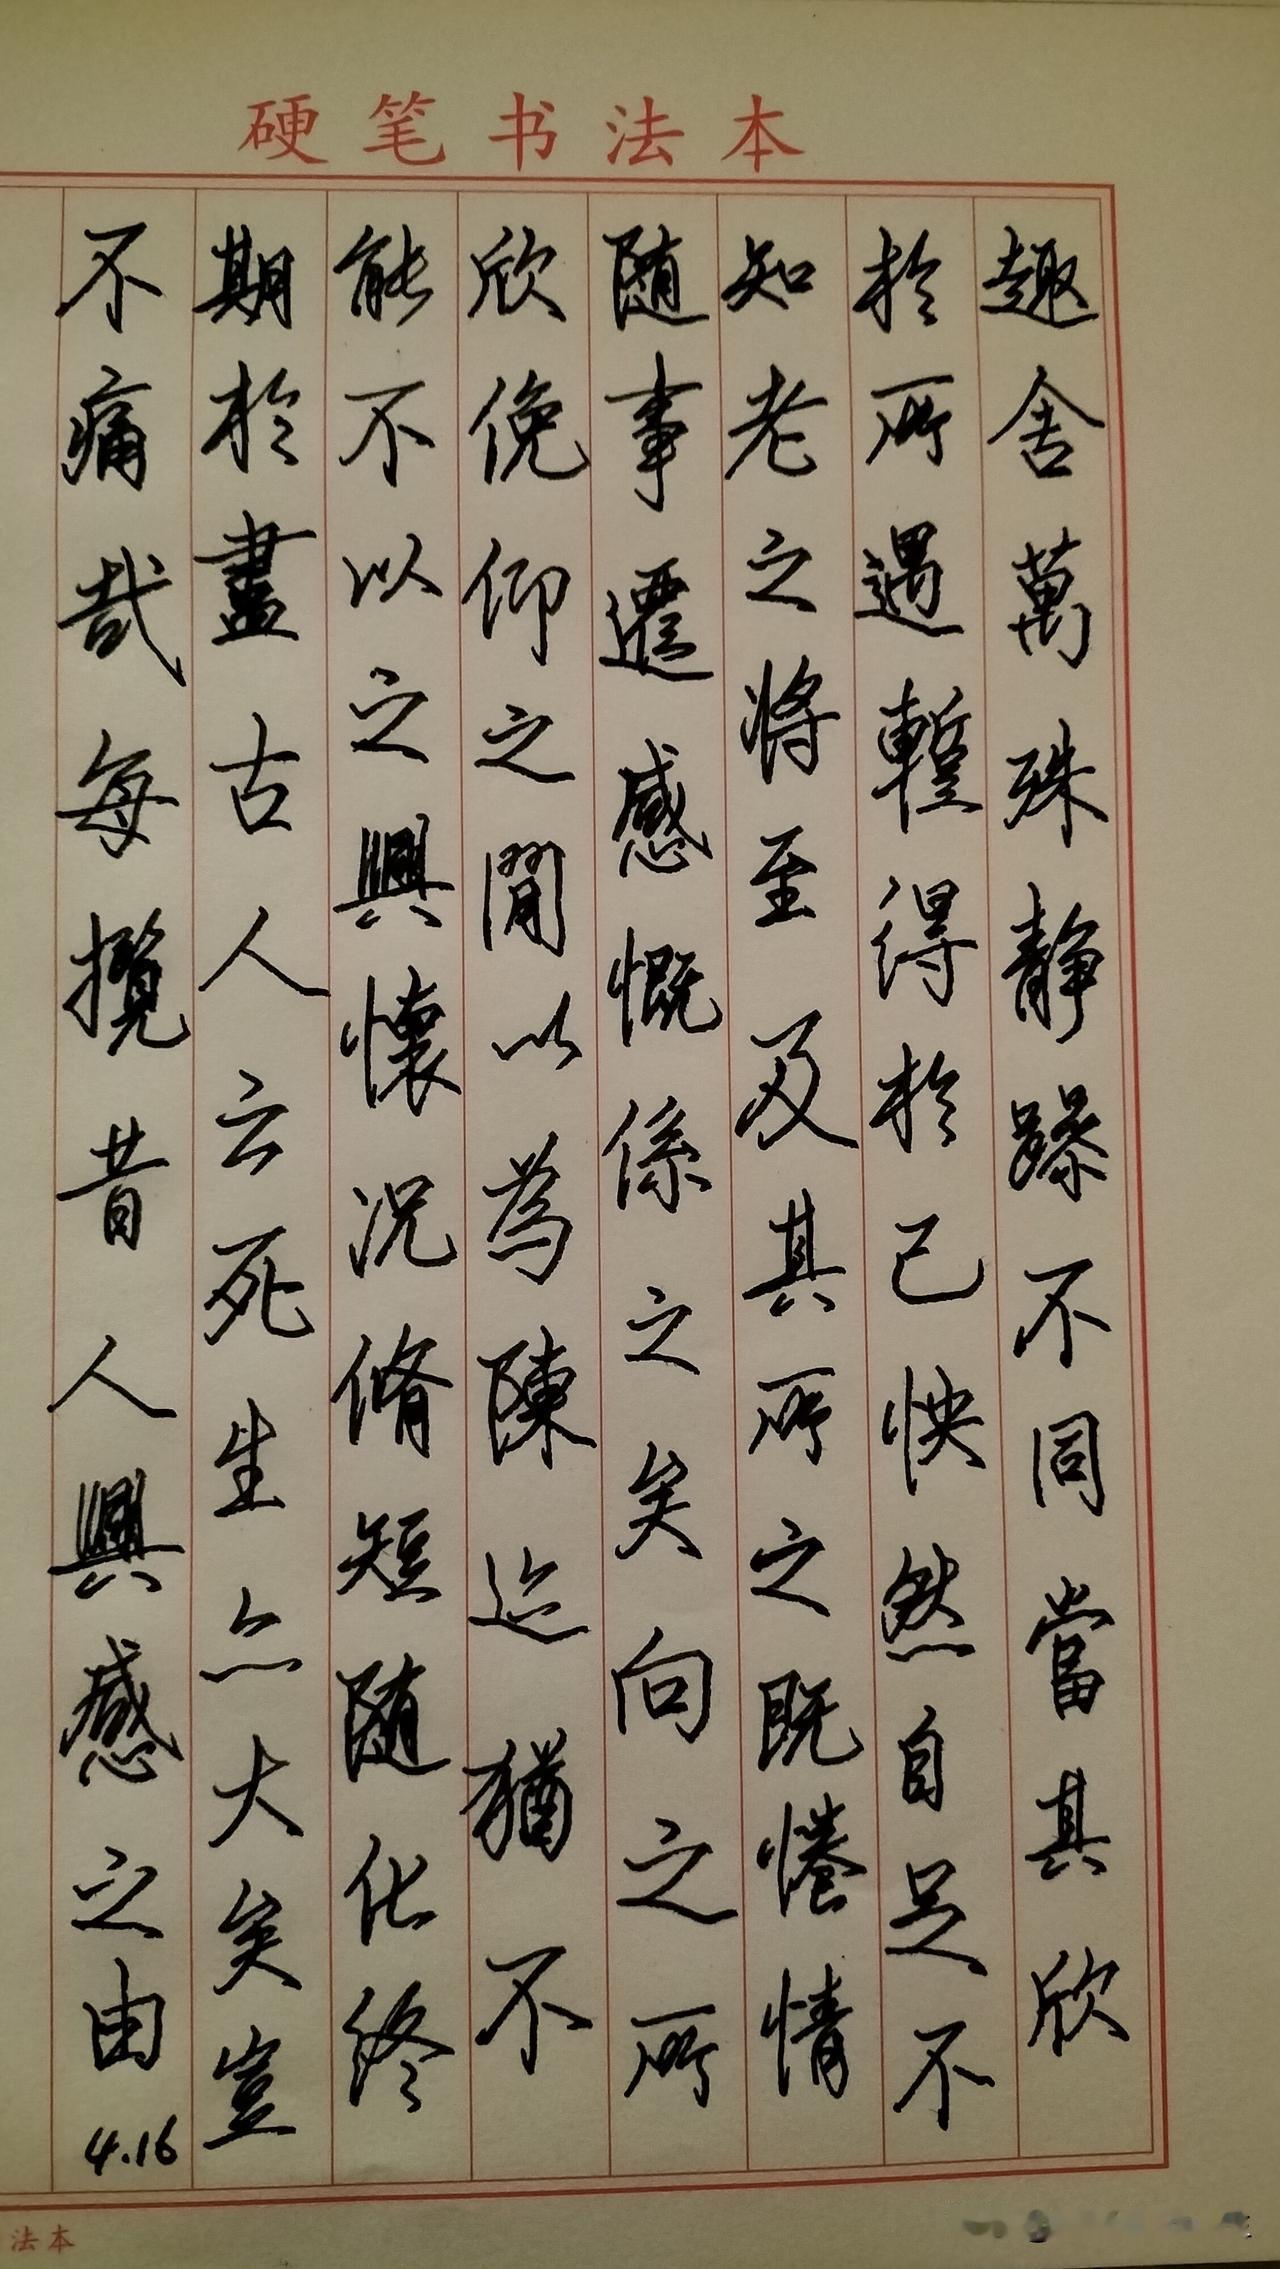 硬笔书法本
趣舍萬殊静躁不同當其欣
於所遇蹔得於己怏然自足不
知老之将至及其所之既惓情
随事遷感慨係之矣向之所
欣俛仰之閒以為陳迹猶不
能不以之興懷况脩短随化終
期於盡古人云死生亦大矣豈
不痛哉每攬昔人興感之由
4.16
法本